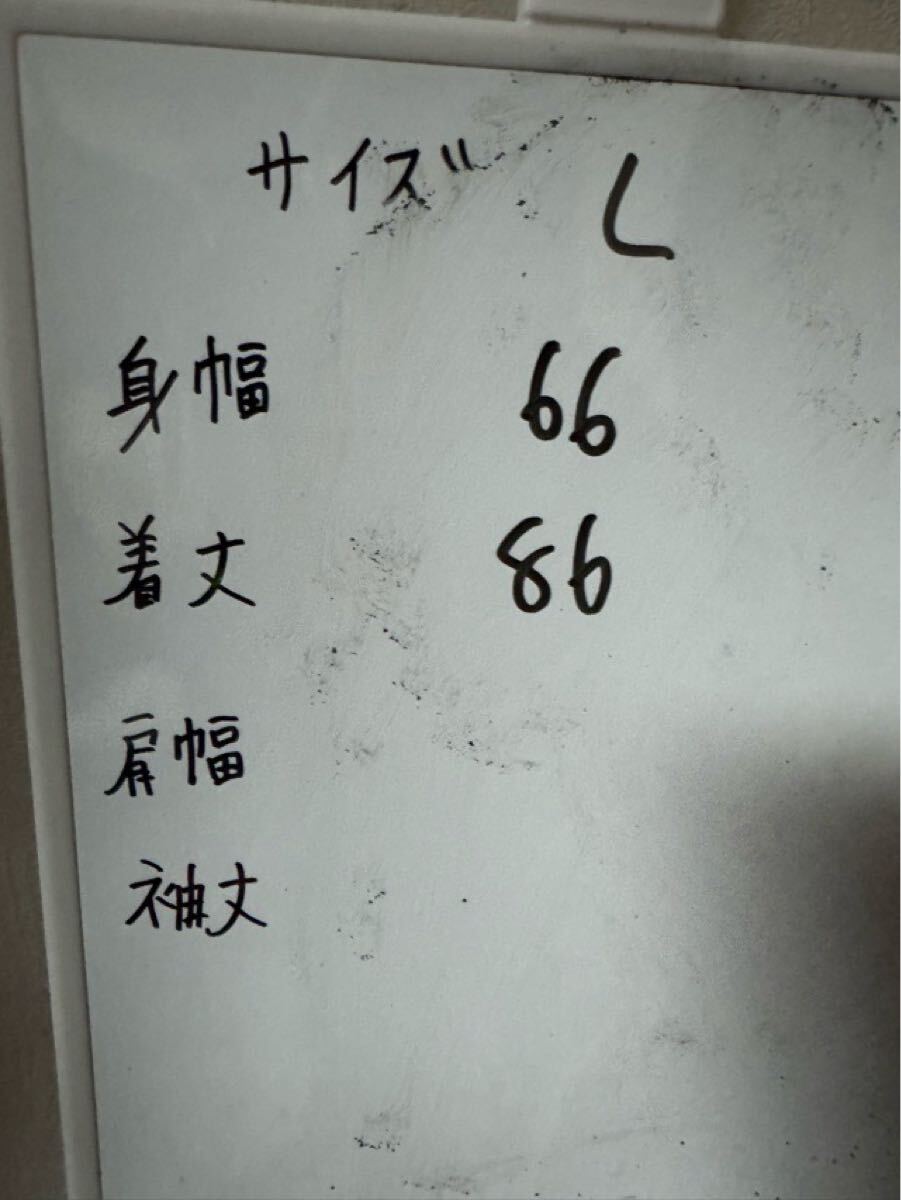 サイズ L
身幅 66
着丈 86
肩幅
袖丈